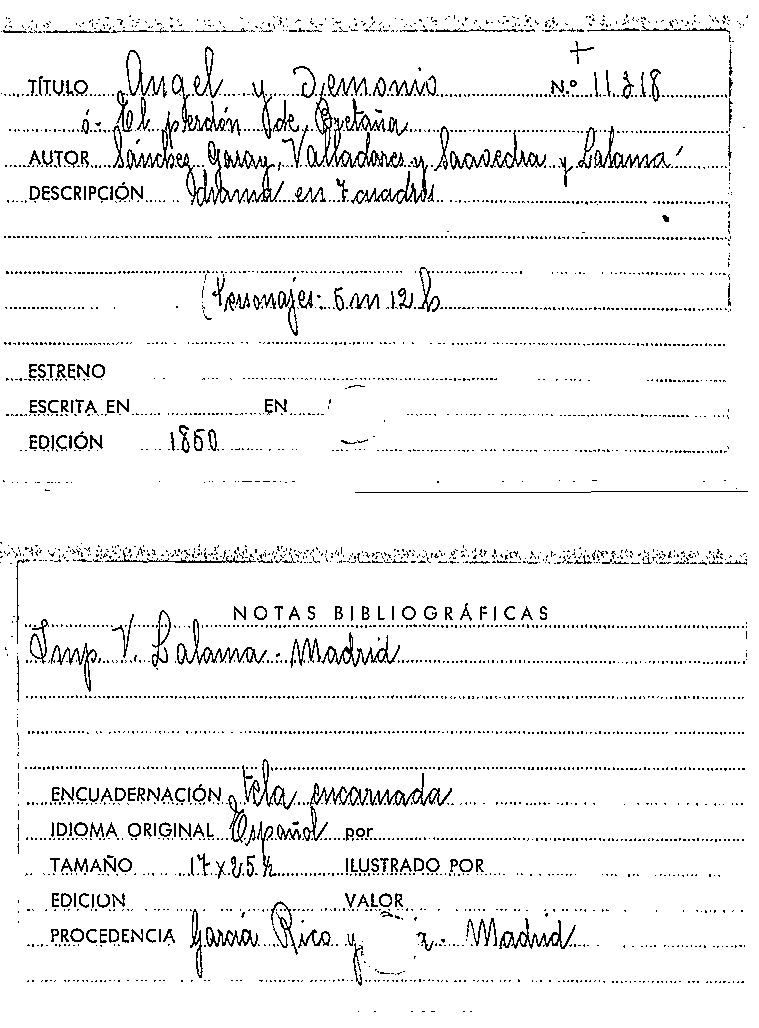 +
TÍTULO Angel y Demonio N.º 11318
ó- El perdón de Bretaña
AUTOR Sánchez Garay, Valladares y Saavedra y Lalama
DESCRIPCIÓN Drama en 7 cuadros
(Personajes- 5 m 12 h
ESTRENO
ESCRITA EN EN
EDICIÓN 1850
NOTAS BIBLIOGRÁFICAS
Imp. V. Lalama - Madrid
ENCUADERNACIÓN tela encarnada
IDIOMA ORIGINAL Español por
TAMAÑO 17 x 25 ½ ILUSTRADO POR
EDICION VALOR
PROCEDENCIA García Rico y Madrid